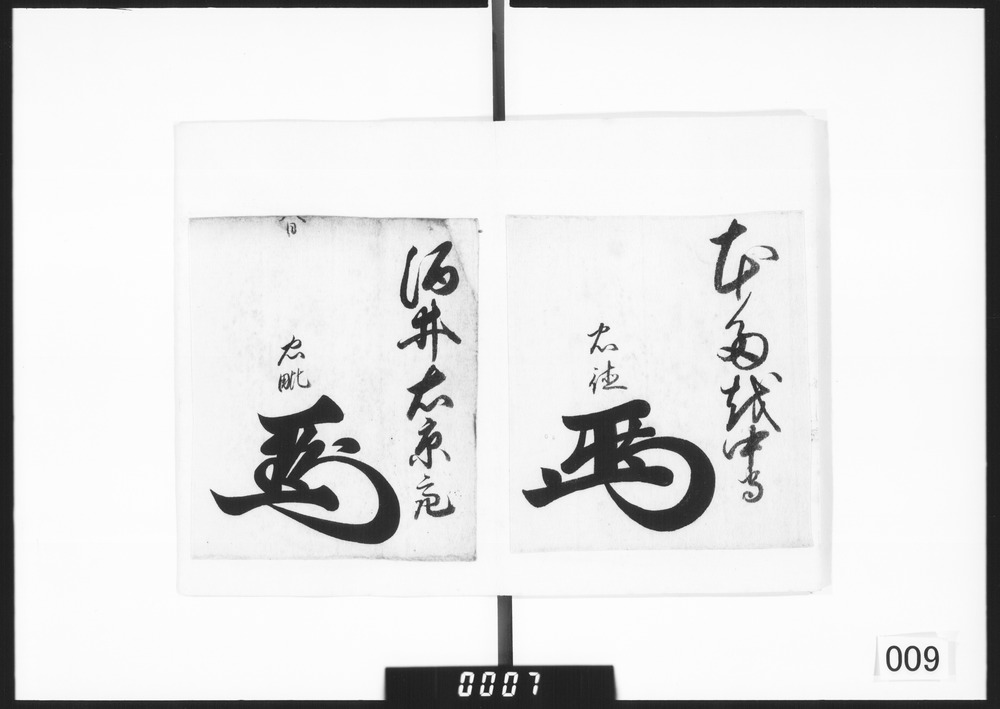 本多越中守
忠徳
酒井右京亮
忠毗
日
009
0007